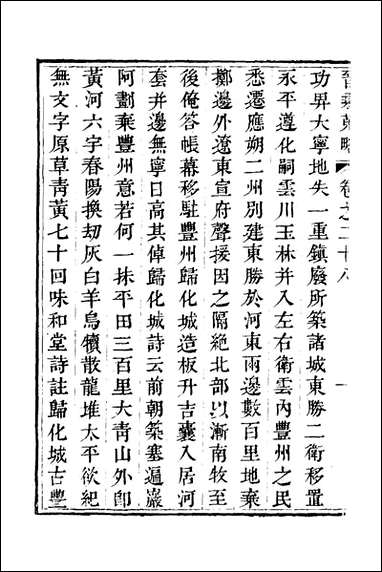 晉乘蒐略 卷之二十八
功畀大寧地失一重鎮廢所築諸城東勝二衛移置
永平遵化嗣雲川玉林并入左右衛雲內豐州之民
悉遷應朔二州別建東勝於河東兩邊數百里地棄
擲邊外遼東宣府聲援因之隔絶北部以漸南牧至
後俺答帳幕移駐豐州歸化城造板升吉囊入居河
套并邊無寧日高其倬歸化城詩云前朝築塞遍巖
阿劃棄豐州意若何一抹平田三百里大青山外卽
黃河六字春陽換刧灰白羊烏犢散龍堆太平欲紀
無文字原草青黃七十回味和堂詩註歸化城古豐